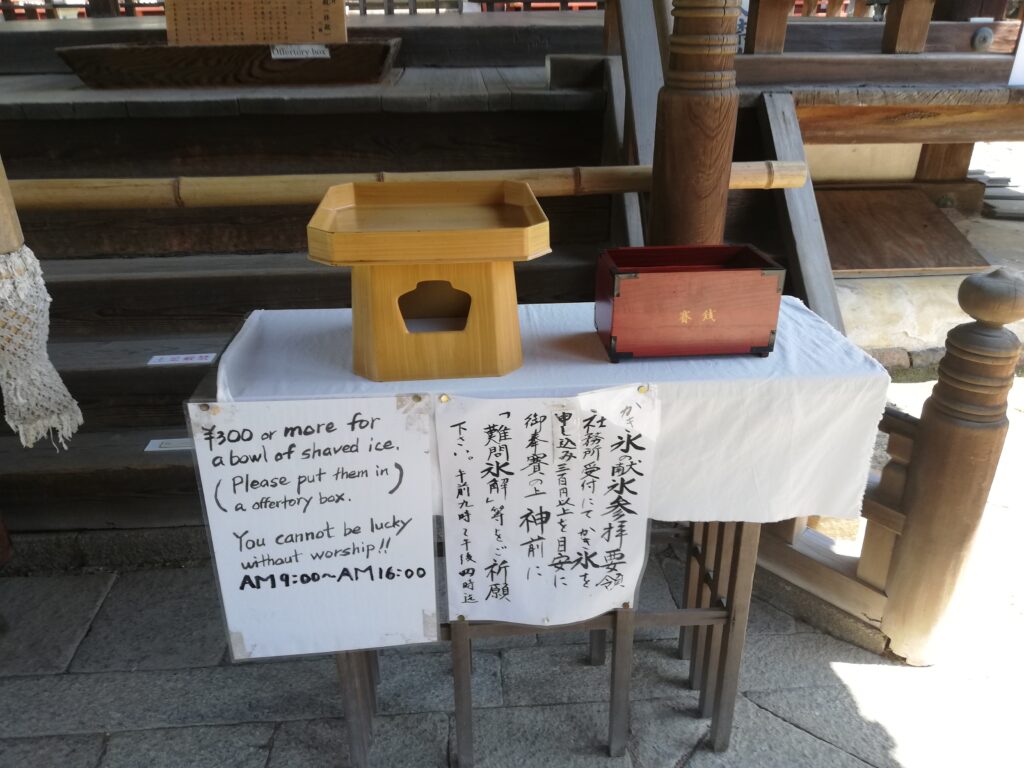 Offertory box
賽銭
¥300 or more for
a bowl of shaved ice.
(Please put them in
a offertory box.)
You cannot be lucky
without worship!!
AM9:00~AM16:00
かき氷の献氷参拝要領
社務所受付にてかき氷を
申し込み三百円以上を目安に
御奉賽の上神前に
「難問氷解」等をご祈願
下さい。午前九時~午後四時迄